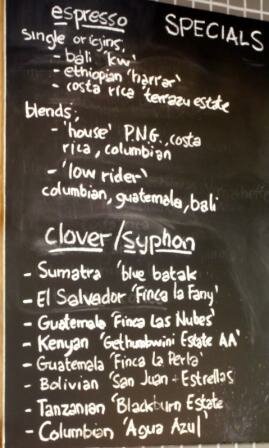 espresso
SPECIALS
single origins;
- bali 'kw'
- ethiopian 'harrar'
- costa rica 'terrazu estate
blends;
- 'house' P.N.G., costa
rica, columbian
- 'low rider'
columbian, guatemala, bali
clover/syphon
- Sumatra 'blue batak
- El Salvador 'Finca la Fany'
- Guatemala 'Finca Las Nubes'
- Kenyan 'Gethumbwini Estate AA'
- Guatemala 'Finca la Perla'
- Bolivian 'San Juan + Estrellas
- Tanzanian 'Blackburn Estate
- Columbian 'Agua Azul'